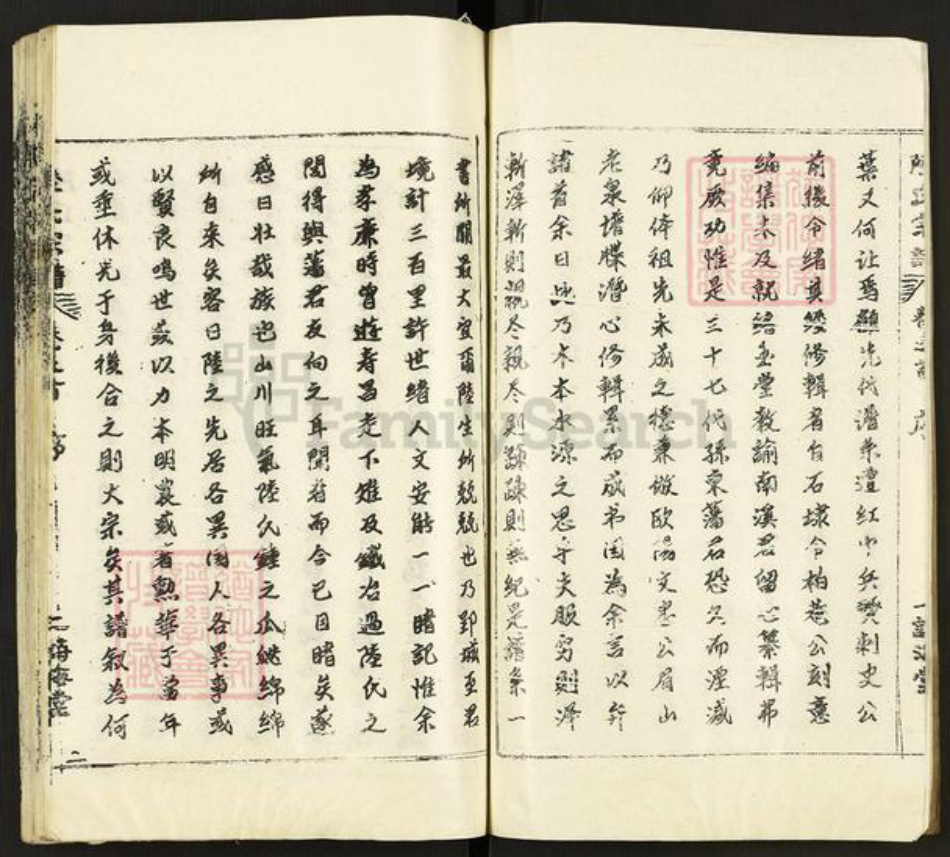 陸氏宗譜 卷之首 序 一 誦海堂
葉又何让焉顯光代譜系遭红巾兵燹刺史公
前後令緒其變修輯者自石埭令柏菴公刻意
編集未及就緒至堂教諭南溪君留心纂輯弗
竟厥功惟是三十七代孫東藩君恐久而湮滅
乃仰体祖先未成之德兼倣欧陽文忠公眉山
老泉譜牒潛心修輯系而成书因為余言以弁
諸首余曰此乃木本水源之思乎夫服穷則泽
斬澤斬則親尽親尽則踈踈則無紀是譜系一
書所關最大宜爾陸生所兢兢也乃野城至君
境計三百里許世緒人文安能一一睹記惟余
為孝廉時曾遊寿昌走下雉及鐵冶過陸氏之
閭得與藩君友向之耳聞者而今已目睹矣遂
感曰壮哉族也山川旺氣陸氏鍾之瓜綿綿
所自来矣客曰陸之先居各異國人各異事或
以賢良鳴世或以力本明農或者勲華于當年
或垂休光于身後合之則大宗矣其譜叙為何
陸氏宗譜 卷之首 序 二 誦海堂
FamilySearch